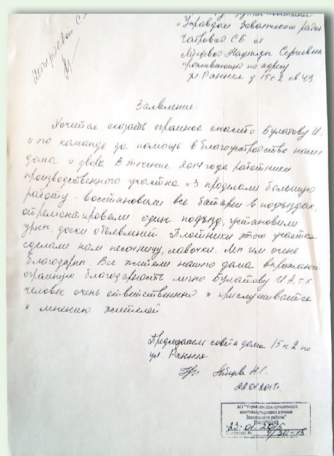 "Управдом Заволжского района"
Чабровой С.Б. от
проживающего по адресу
ул. Ранняя д 15 к.2 кв 49
Заявление.
Хочется сказать огромное спасибо Булатову И.
и его команде за помощь в благоустройстве нашего
дома и двора. В течение 2014 года работники
производственного участка №3 проделали большую
работу. восстановили все батареи в подъездах,
отремонтировали один подъезд, установили
урны, доски объявлений. Плотники этого участка
сделали нам песочницу, лавочки. Мы им очень
благодарны. Все жители нашего дома выражают
огромную благодарность лично Булатову И.А, т.к
человек очень ответственный и прислушивается
к мнению жителей.
Председатель совета дома 15 к.2 по
ул. Ранняя
Н.С.
2015